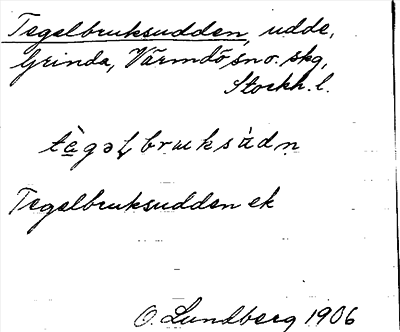 Tegelbruksudden, udde,
Grinda, Värmdö sn o. skg,
Stockh. l.
Tegelbruksudden ek
O. Lundberg 1906